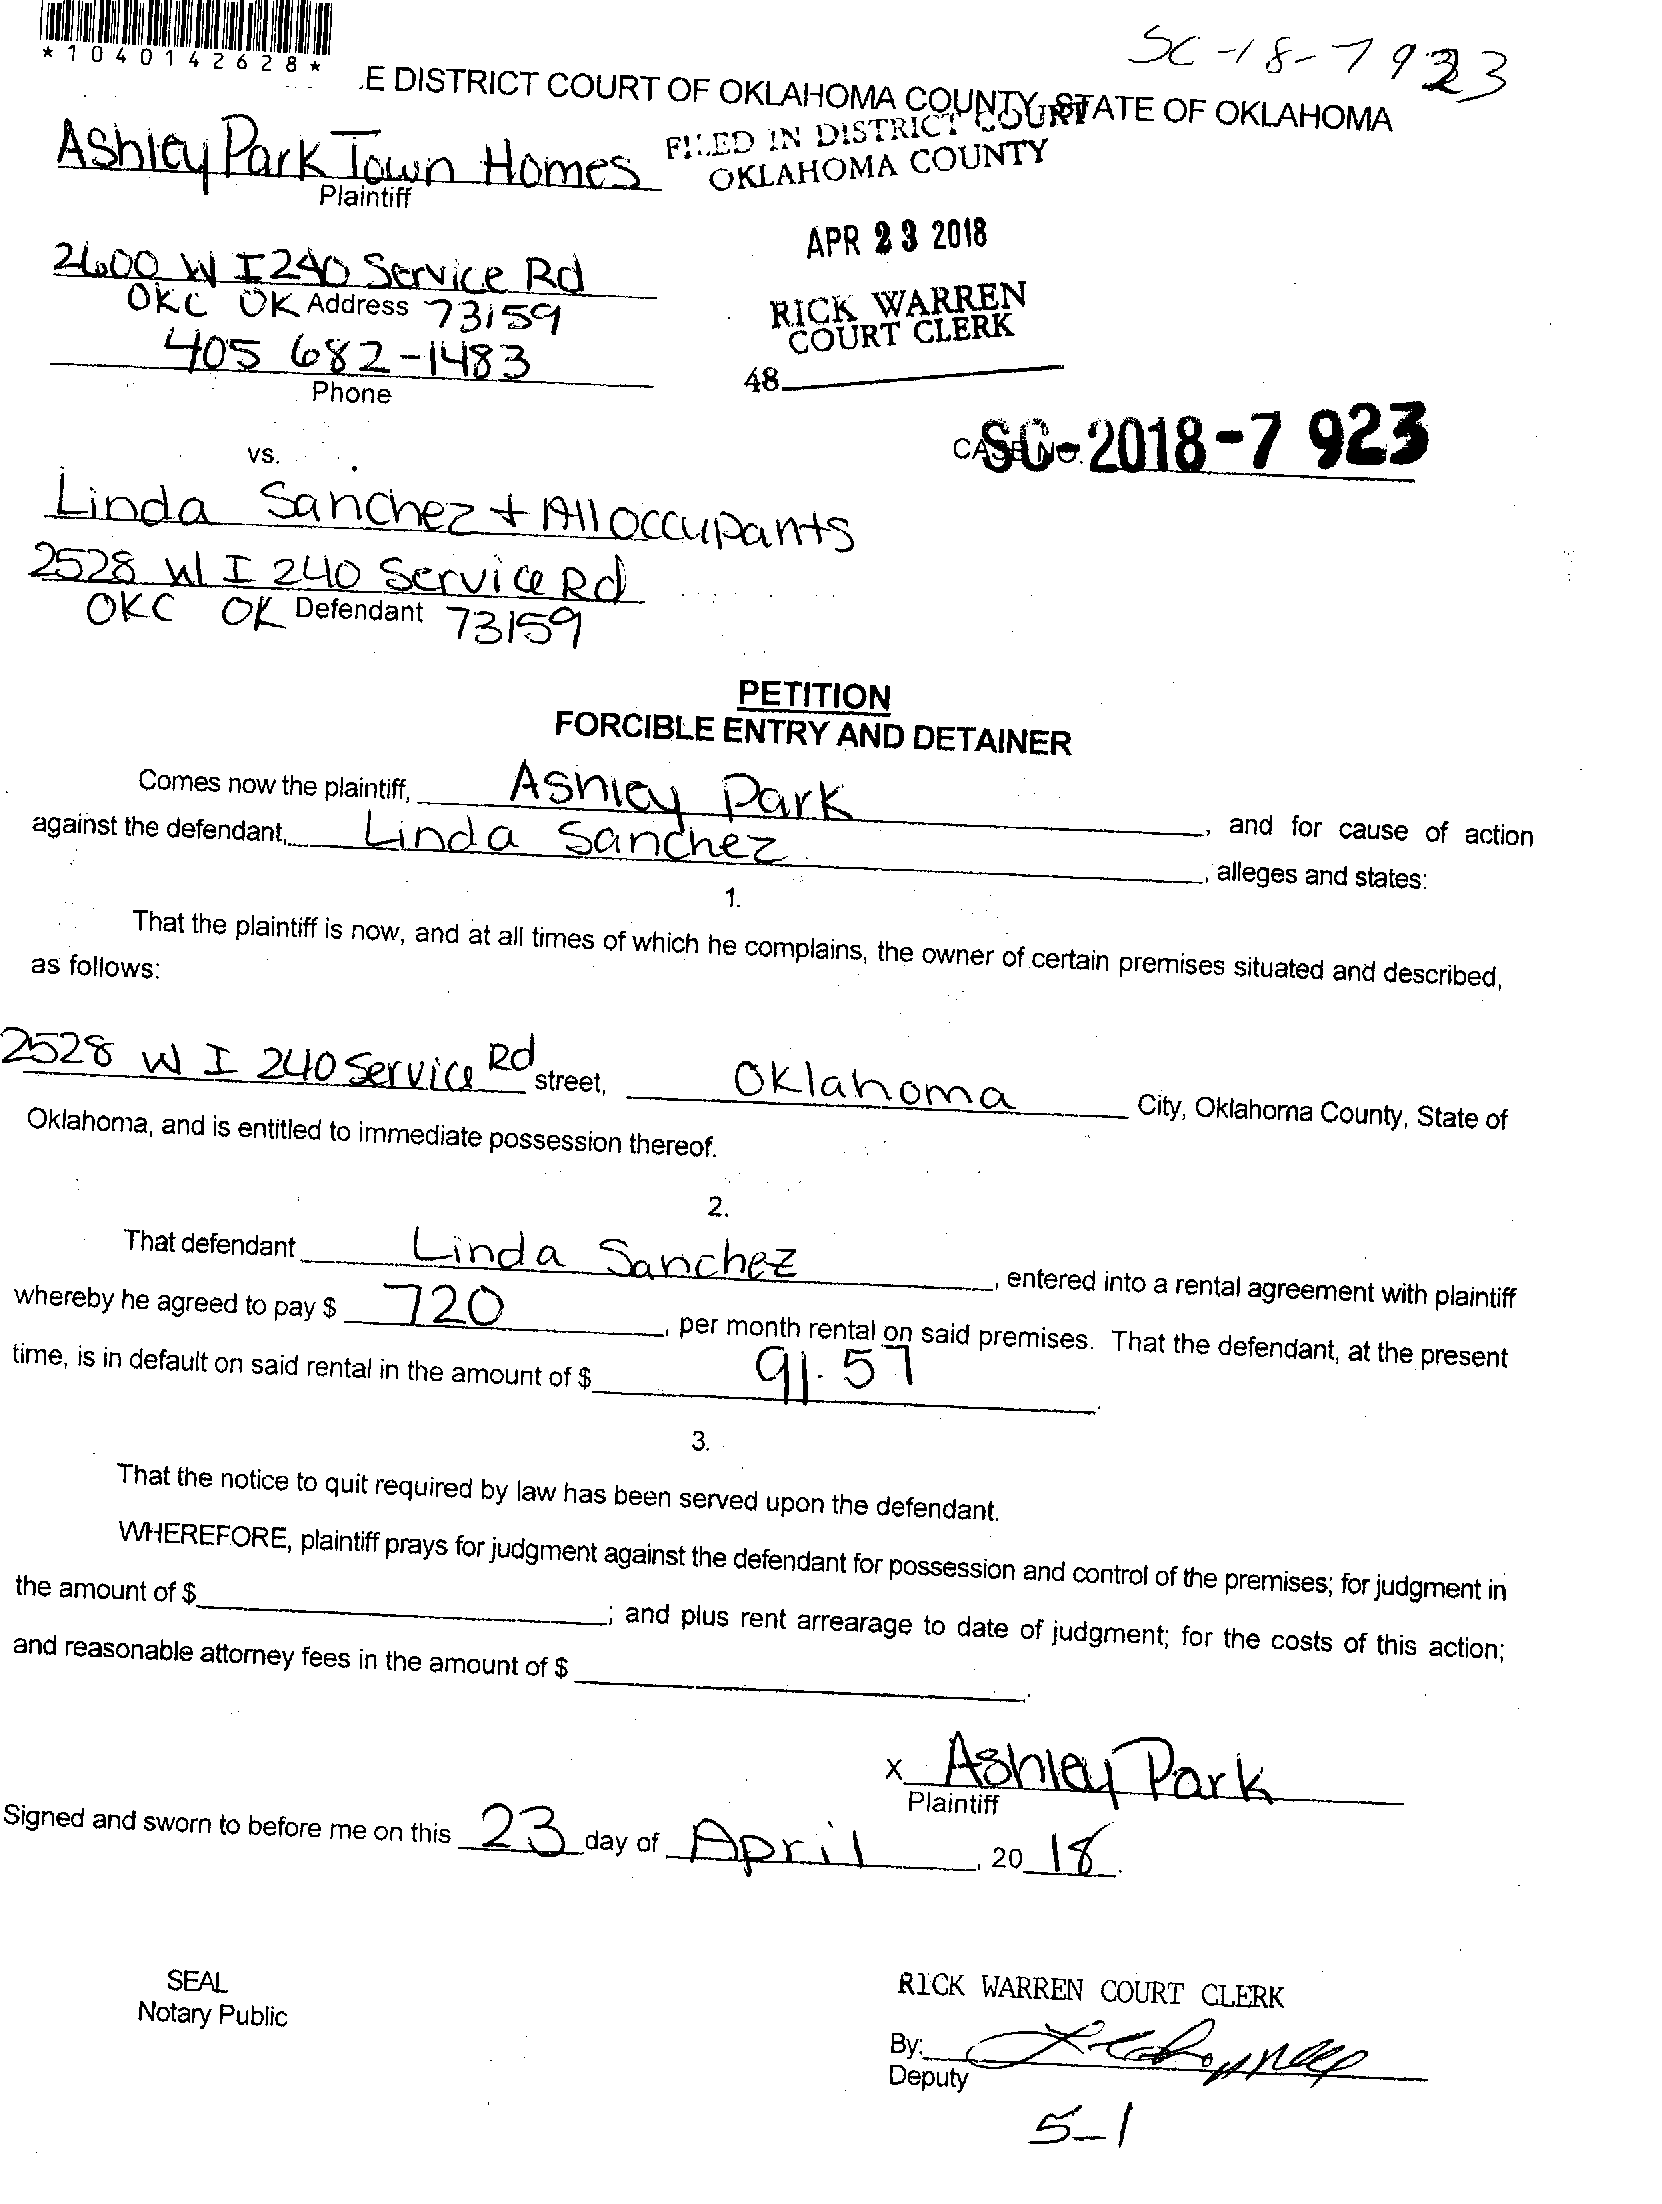 *1040142628*
SC-18-7923
.E DISTRICT COURT OF OKLAHOMA COUNTY, STATE OF OKLAHOMA
FILED IN DISTRICT COURT
OKLAHOMA COUNTY
Ashley Park Town Homes
Plaintiff
APR 23 2018
2600 W I240 Service Rd
OKC OK Address 73159
RICK WARREN
COURT CLERK
405 682-1483
Phone
48
CASE NO. SC-2018-7 923
vs.
Linda Sanchez + All occupants
2528 W I 240 Service Rd
OKC OK Defendant 73159
PETITION
FORCIBLE ENTRY AND DETAINER
Comes now the plaintiff, Ashley Park, and for cause of action
against the defendant, Linda Sanchez, alleges and states:
1.
That the plaintiff is now, and at all times of which he complains, the owner of certain premises situated and described,
as follows:
2528 W I 240 Service Rd street, Oklahoma City, Oklahoma County, State of
Oklahoma, and is entitled to immediate possession thereof.
2.
That defendant Linda Sanchez, entered into a rental agreement with plaintiff
whereby he agreed to pay $ 720, per month rental on said premises. That the defendant, at the present
time, is in default on said rental in the amount of $ 91.57.
3.
That the notice to quit required by law has been served upon the defendant.
WHEREFORE, plaintiff prays for judgment against the defendant for possession and control of the premises; for judgment in
the amount of $ ; and plus rent arrearage to date of judgment; for the costs of this action;
and reasonable attorney fees in the amount of $ .
x Ashley Park
Plaintiff
Signed and sworn to before me on this 23 day of April, 20 18.
SEAL
Notary Public
RICK WARREN COURT CLERK
By:
Deputy
5-1